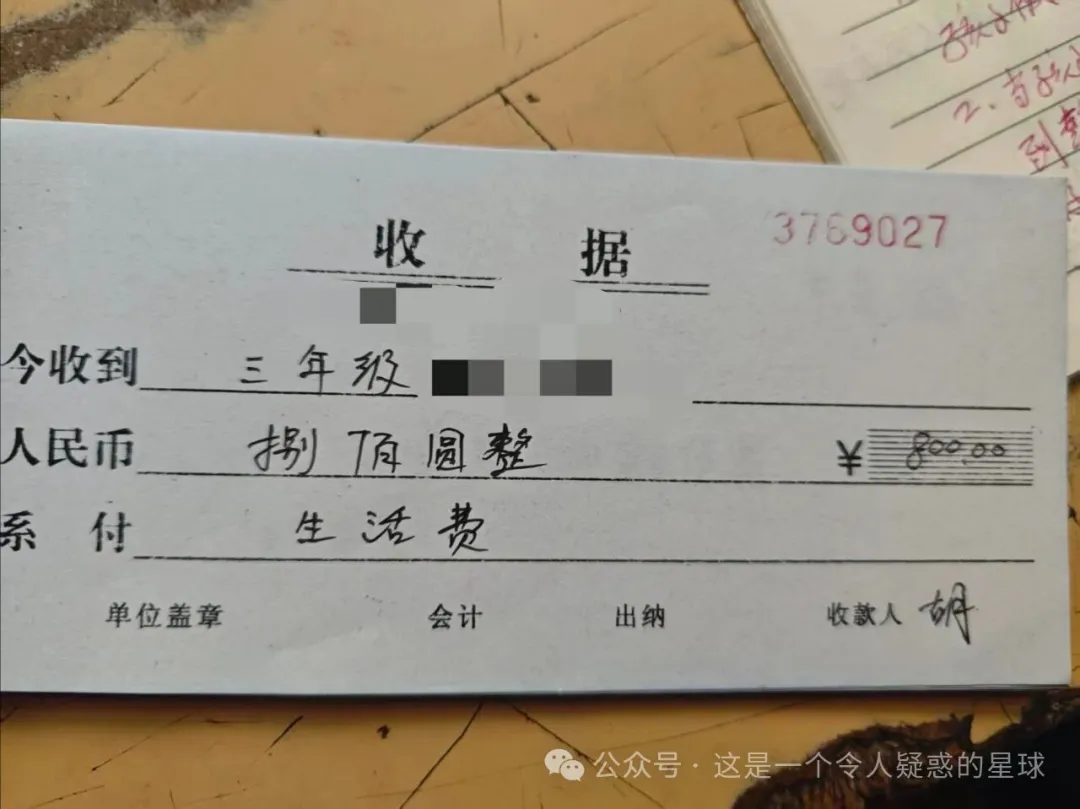 2.
收据 3769027
今收到 三年级
人民币 捌佰圆整 ¥ 800.00
系付 生活费
单位盖章 会计 出纳 收款人 胡
公众号·这是一个令人疑惑的星球